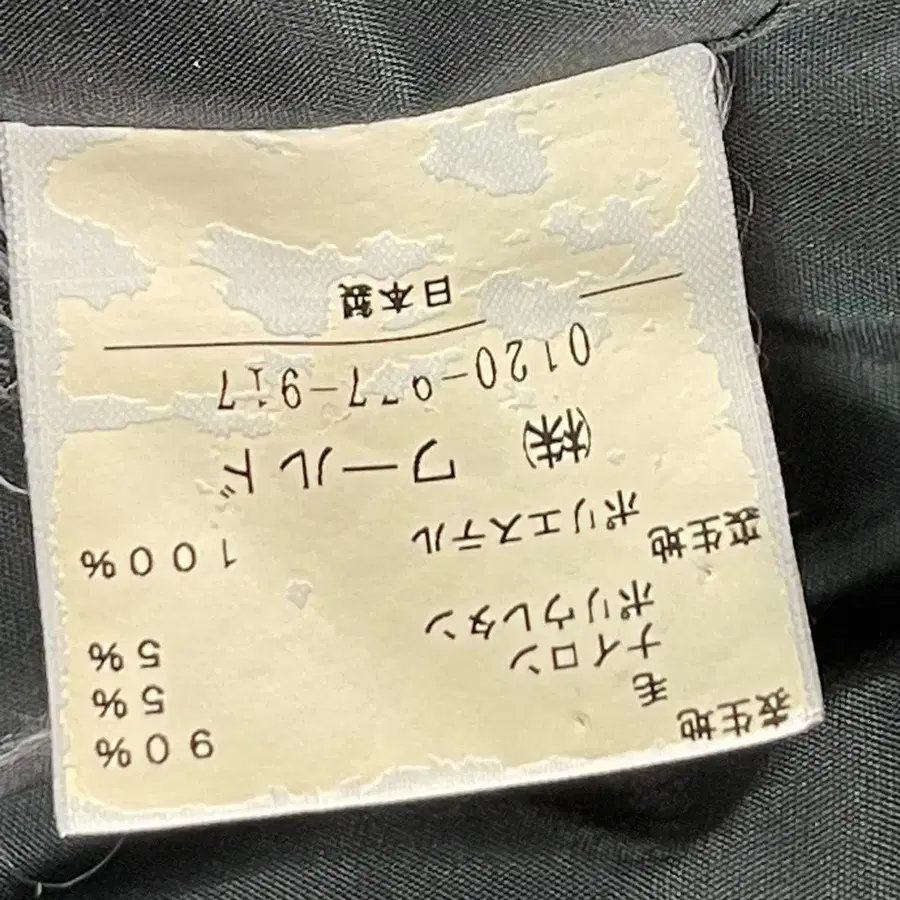 表生地
毛 90%
ナイロン 5%
ポリウレタン 5%
裏生地
ポリエステル 100%
(株) ワールド
日本製